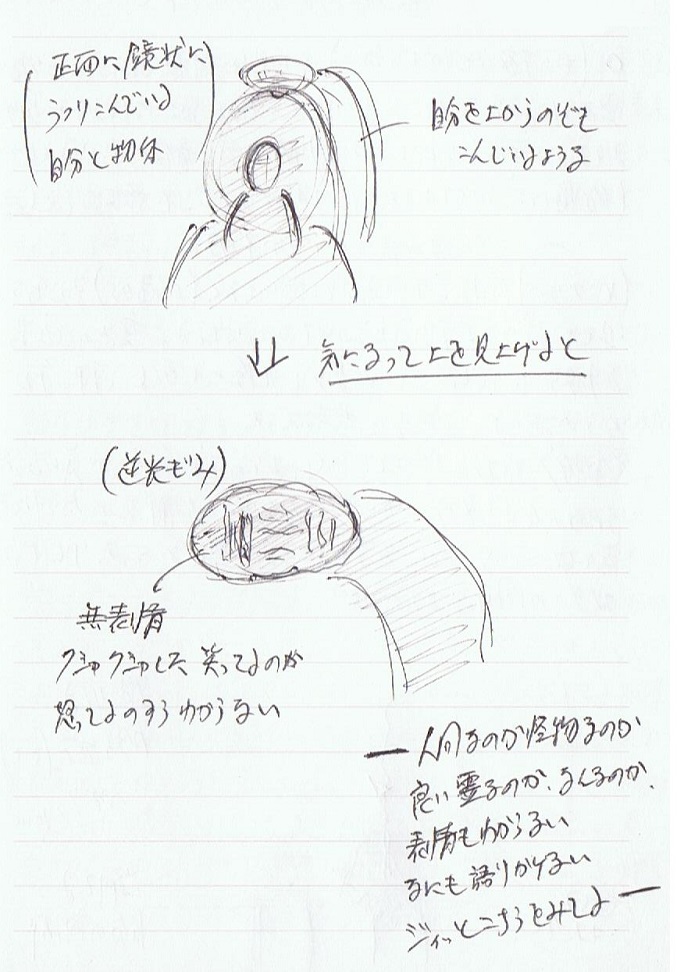 正面に鏡状に
うつりこんでいる
自分と物体
自分を上からのぞき
こんでいるような
気になって上を見上げると
(逆光ぎみ)
無表情
クシャクシャした 笑ってるのか
怒ってるのすらわからない
― 人間なのか怪物なのか
良い霊なのか、なんなのか、
表情もわからない
なにも語りかけない
ジィっとこちらをみてる ―